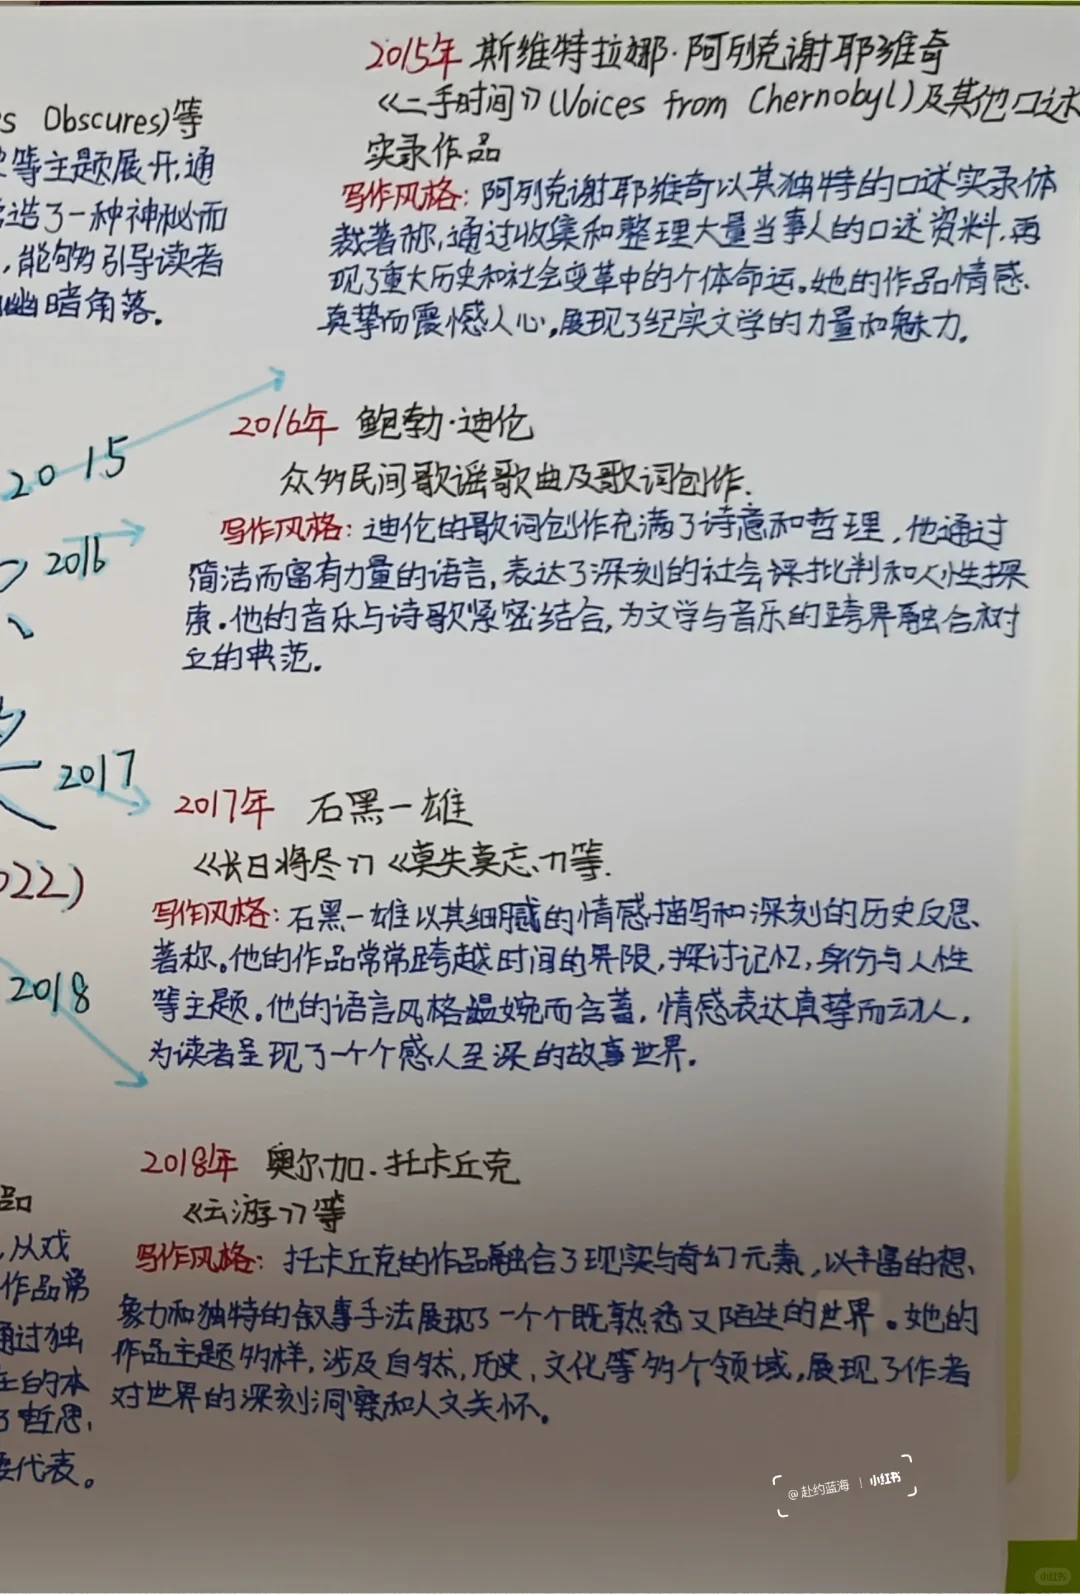 2015年 斯维特拉娜·阿列克谢耶维奇
《二手时间》(Voices from Chernobyl)及其他口述
实录作品
写作风格：阿列克谢耶维奇以其独特的口述实录体
裁著称，通过收集和整理大量当事人的口述资料，再
现了重大历史和社会变革中的个体命运。她的作品情感
真挚而震憾人心，展现了纪实文学的力量和魅力。
s Obscures)等
等主题展开，通
造了一种神秘而
，能够引导读者
幽暗角落。
2015
2016年 鲍勃·迪伦
众多民间歌谣歌曲及歌词创作.
写作风格：迪伦的歌词创作充满了诗意和哲理，他通过
简洁而富有力量的语言，表达了深刻的社会批判和人性探
索。他的音乐与诗歌紧密结合，为文学与音乐的跨界融合树
立的典范。
2016
2017
2017年 石黑一雄
《长日将尽》《莫失莫忘》等.
写作风格：石黑一雄以其细腻的情感描写和深刻的历史反思
著称。他的作品常常跨越时间的界限，探讨记忆，身份与人性
等主题。他的语言风格温婉而含蓄，情感表达真挚而动人，
为读者呈现了一个个感人至深的故事世界。
022)
2018
2018年 奥尔加·托卡丘克
《云游》等
写作风格：托卡丘克的作品融合了现实与奇幻元素，以丰富的想
象力和独特的叙事手法展现了一个个既熟悉又陌生的世界。她的
作品主题多样，涉及自然，历史，文化等多个领域，展现了作者
对世界的深刻洞察和人文关怀。
品
，从戏
作品常
通过独
在的本
了哲思，
代表。
@赴约蓝海 | 小红书
小红书